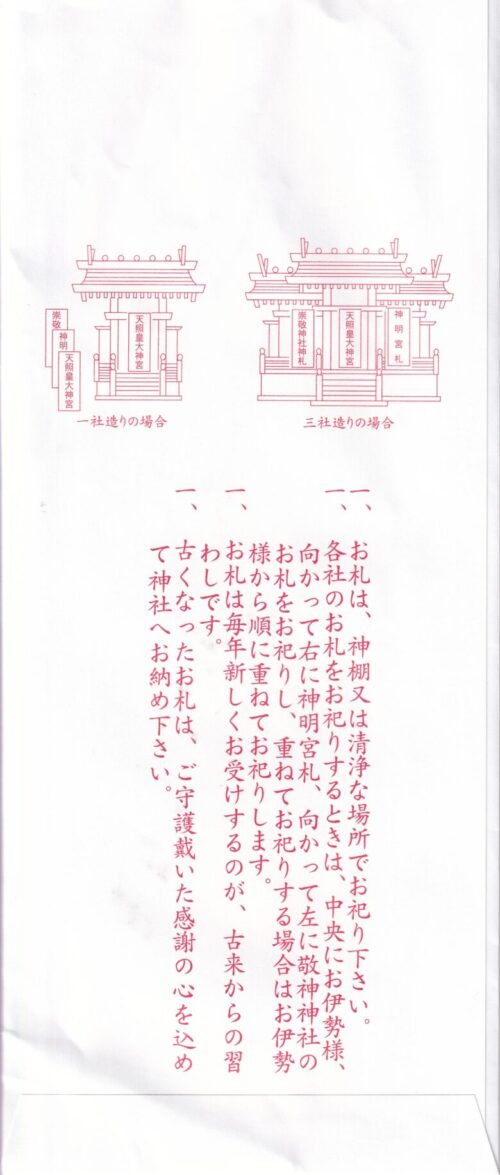 崇敬神社神札
天照皇大神宮
神明宮札
三社造りの場合
天照皇大神宮
崇敬
神明
天照皇大神宮
一社造りの場合
一、お札は、神棚又は清浄な場所でお祀り下さい。
一、各社のお札をお祀りするときは、中央にお伊勢様、
向かって右に神明宮札、向かって左に敬神神社の
お札をお祀りし、重ねてお祀りする場合はお伊勢
様から順に重ねてお祀りします。
一、お札は毎年新しくお受けするのが、古来からの習
わしです。
一、古くなったお札は、ご守護戴いた感謝の心を込め
て神社へお納め下さい。